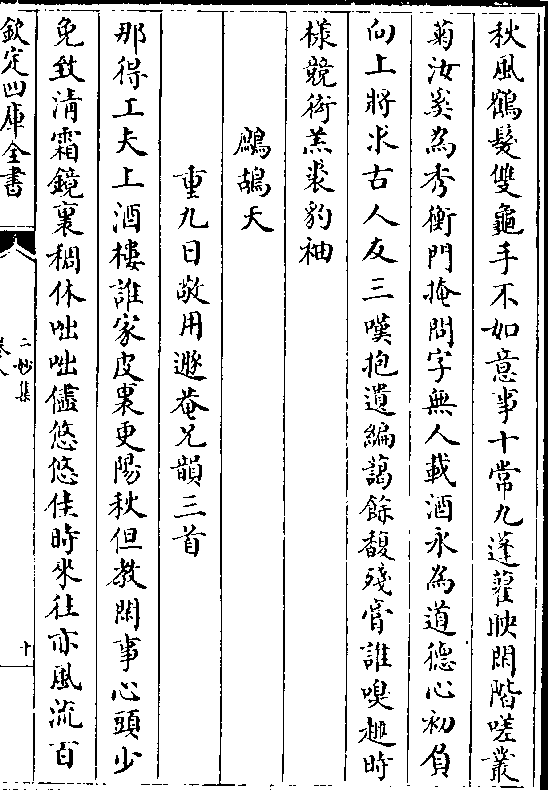 秋風鶴髪雙龜手不如意事十常九蓬藋映閑階嗟叢
菊汝奚為秀衡門掩問字無人載酒永為道德心初負
向上將求古人友三嘆抱遺編藹餘馥殘膏誰嗅趂時
様競衒羔裘豹袖
鷓鴣天
重九日敬用遯菴兄韻三首
那得工夫上酒樓誰家皮裏更陽秋但教閑事心頭少
免致清霜鏡裏稠休咄咄儘悠悠佳時來往亦風流百
欽定四庫全書
二妙集
卷八
十